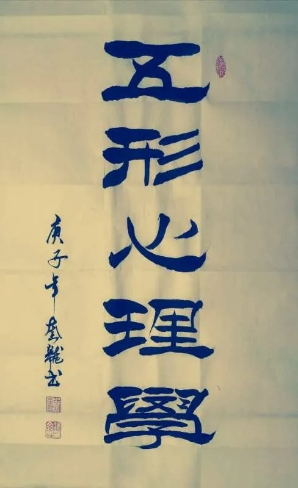 五形心理學
庚子年 书